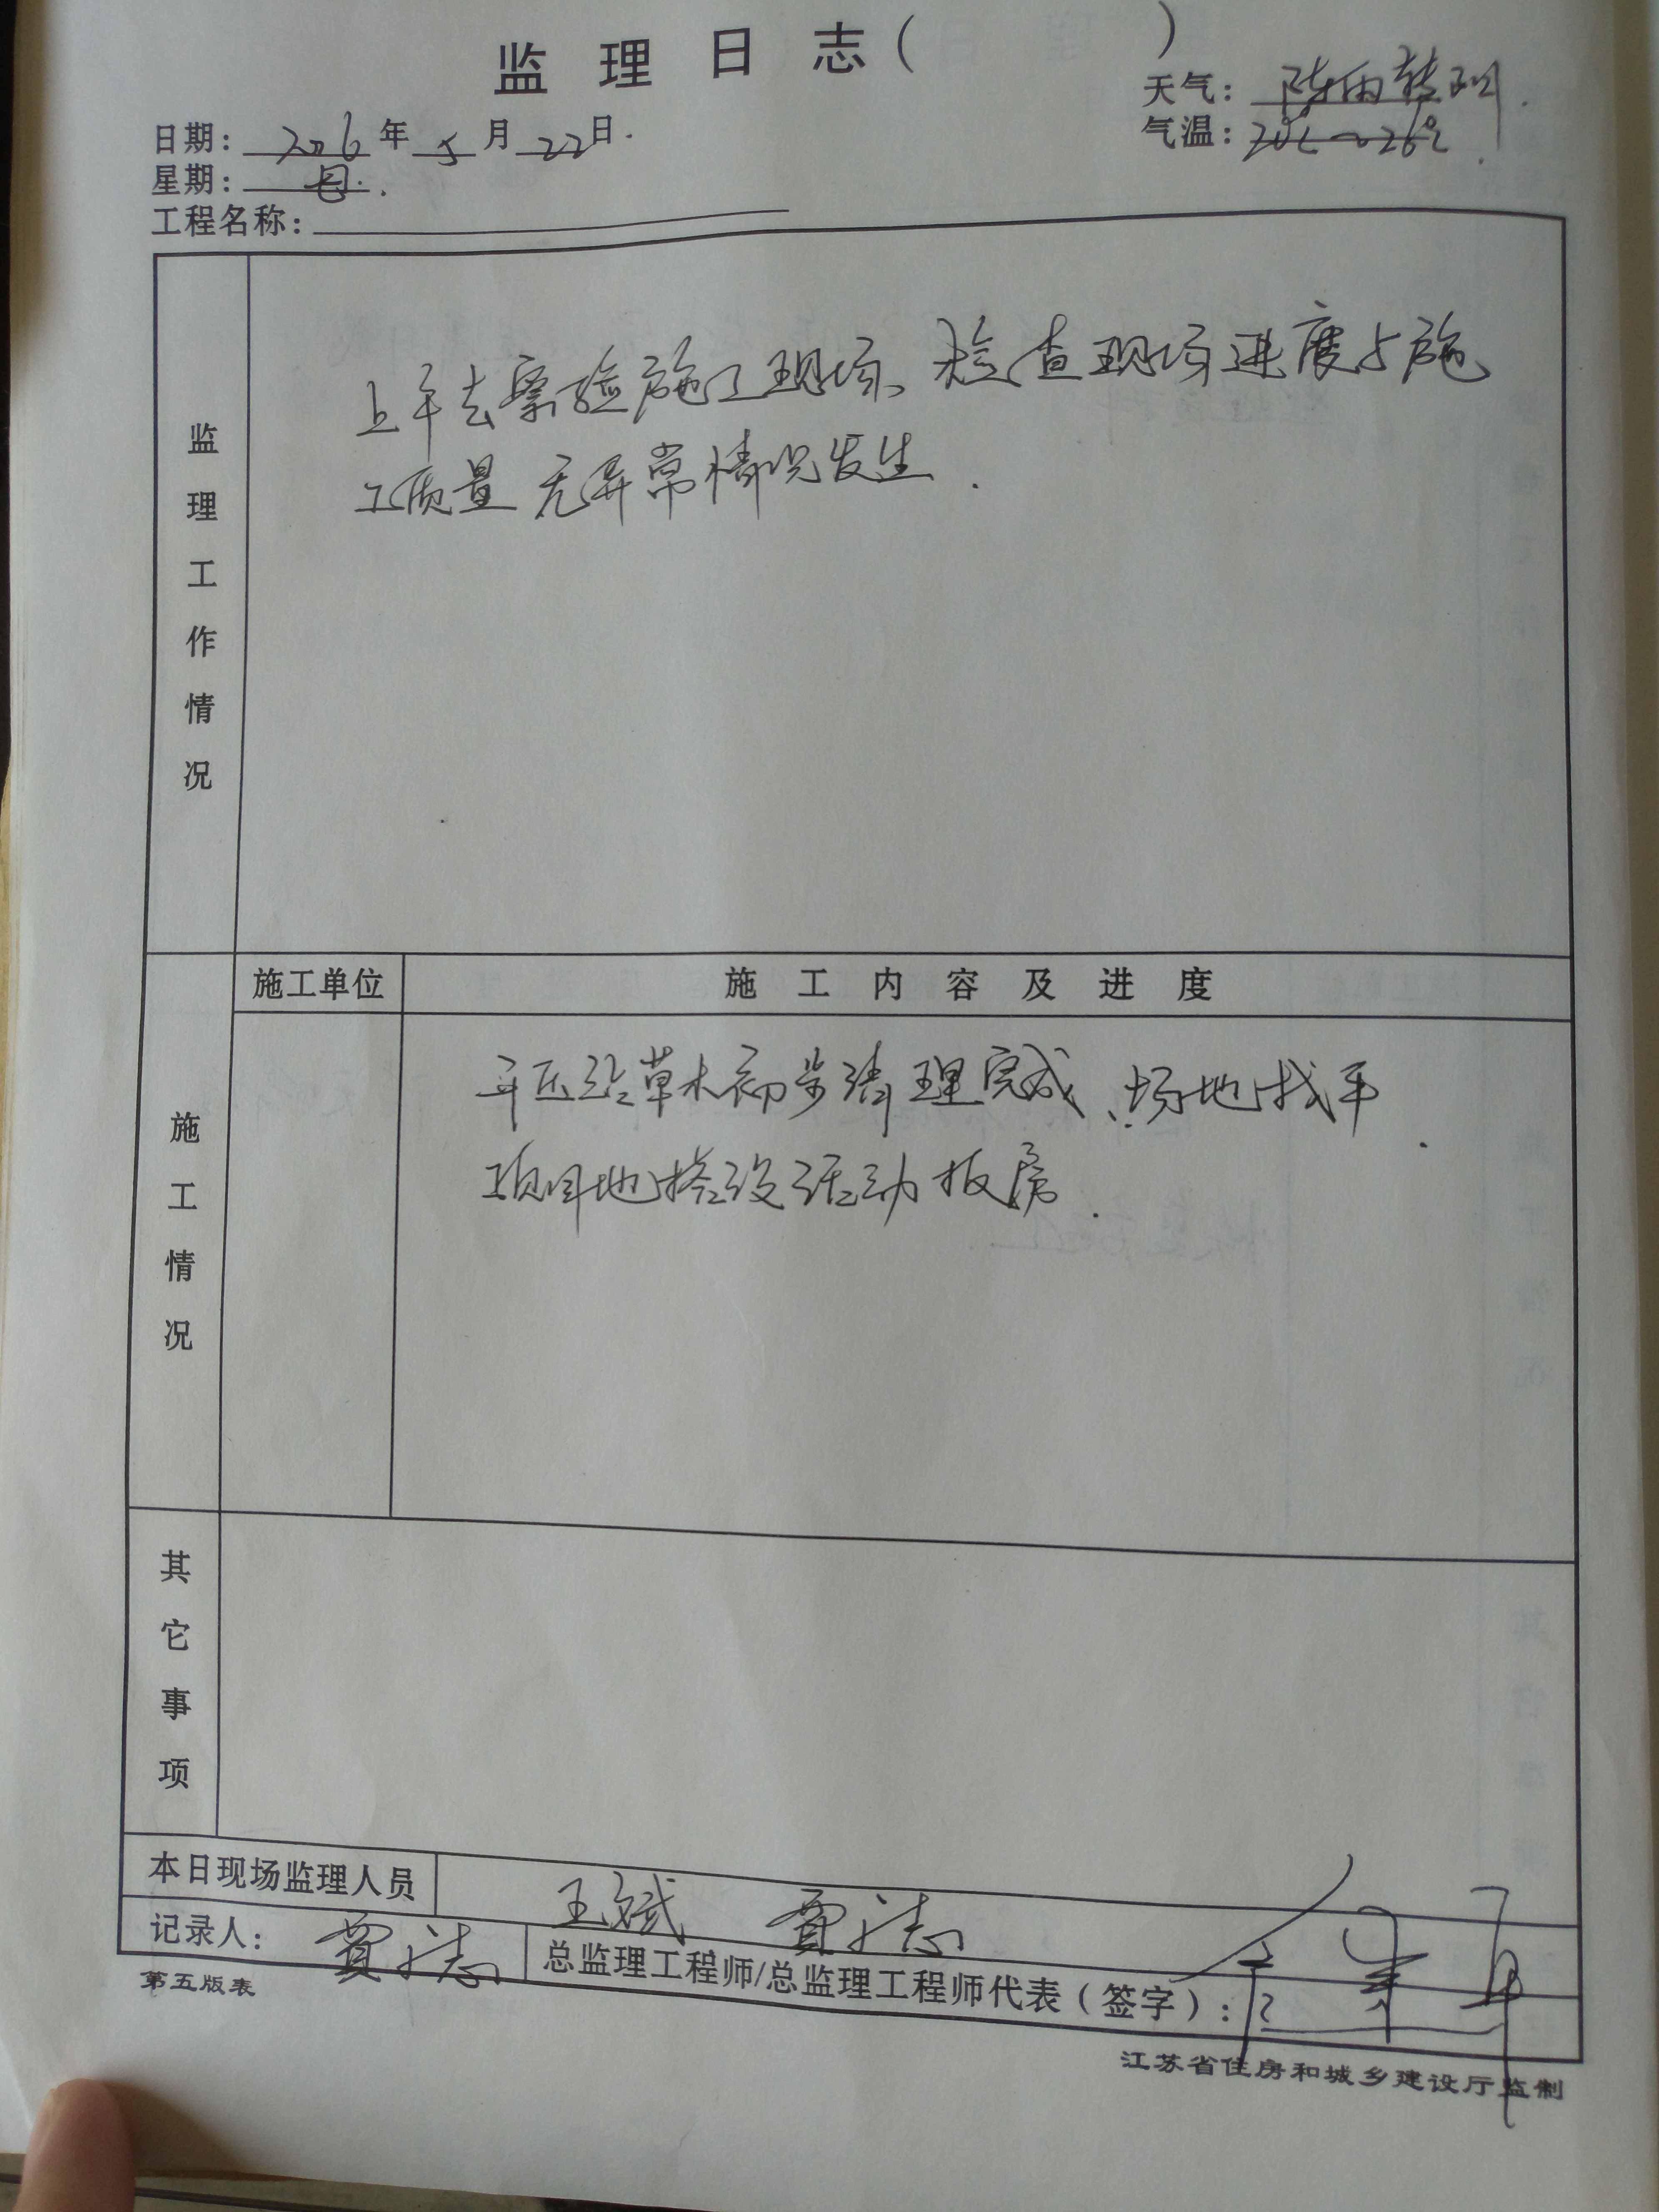 监理日志( )
天气: 阵雨转阴.
日期: 2016年5月22日.
气温: 20℃~26℃.
星期: 日.
工程名称:
监理工作情况
上午去察验施工现场、检查现场进度与施
工质量 无异常情况发生.
施工情况
施工单位
施工内容及进度
草木初步清理完成、场地找平.
项目地搭设活动板房.
其它事项
本日现场监理人员 王斌 贾志
记录人: 贾志
总监理工程师/总监理工程师代表(签字):
第五版表
江苏省住房和城乡建设厅监制